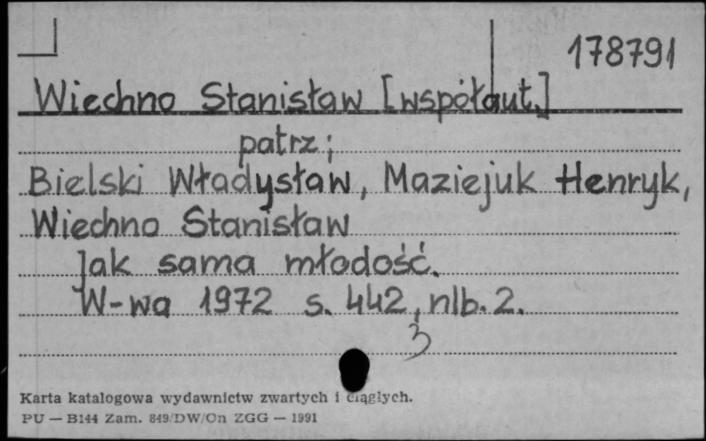 178791
Wiechno Stanisław [współaut.]
patrz;
Bielski Władysław, Maziejuk Henryk,
Wiechno Stanisław
Jak sama młodość.
W-wa 1972 s. 442, nlb. 2.
3
Karta katalogowa wydawnictw zwartych i ciągłych.
PU — B144 Zam. 849/DW/On ZGG — 1991